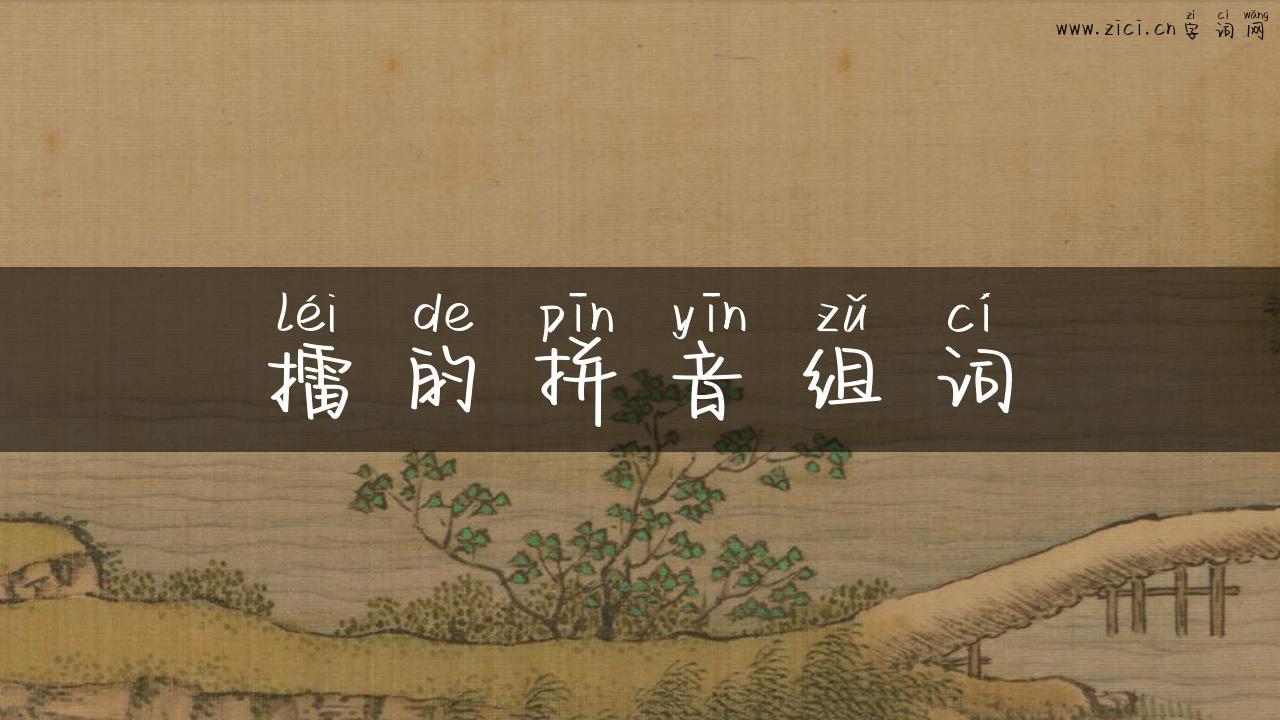 zì cí wǎng
www.zici.cn字词网
léi de pīn yīn zǔ cí
擂的拼音组词